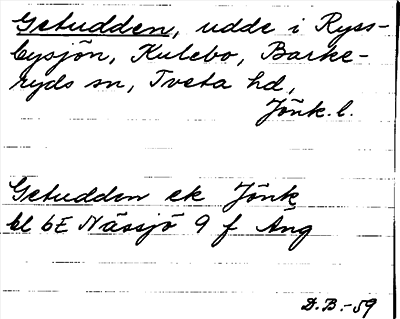 Getudden, udde i Ryss-
bysjön, Kulebo, Barke-
ryds sn, Tveta hd,
Jönk. l.
Getudden ek Jönk
bl 6E Nässjö 9 f Äng
D.B.-59